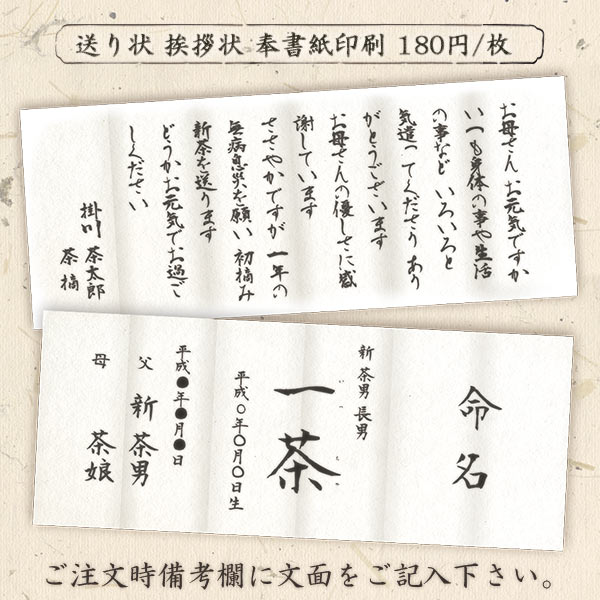 送り状 挨拶状 奉書紙印刷 180円/枚
お母さん お元気ですか
いつも身体の事や生活
の事など いろいろと
気遣ってくださり あり
がとうございます
お母さんの優しさに感
謝しています
ささやかですが 一年の
無病息災を願い 初摘み
新茶を送ります
どうかお元気でお過ご
しください
掛川 茶太郎
茶摘
命名
新 茶男 長男
一茶
いっ さ
平成〇年〇月〇日生
平成●年●月●日
父 新 茶男
母 茶娘
ご注文時備考欄に文面をご記入下さい。